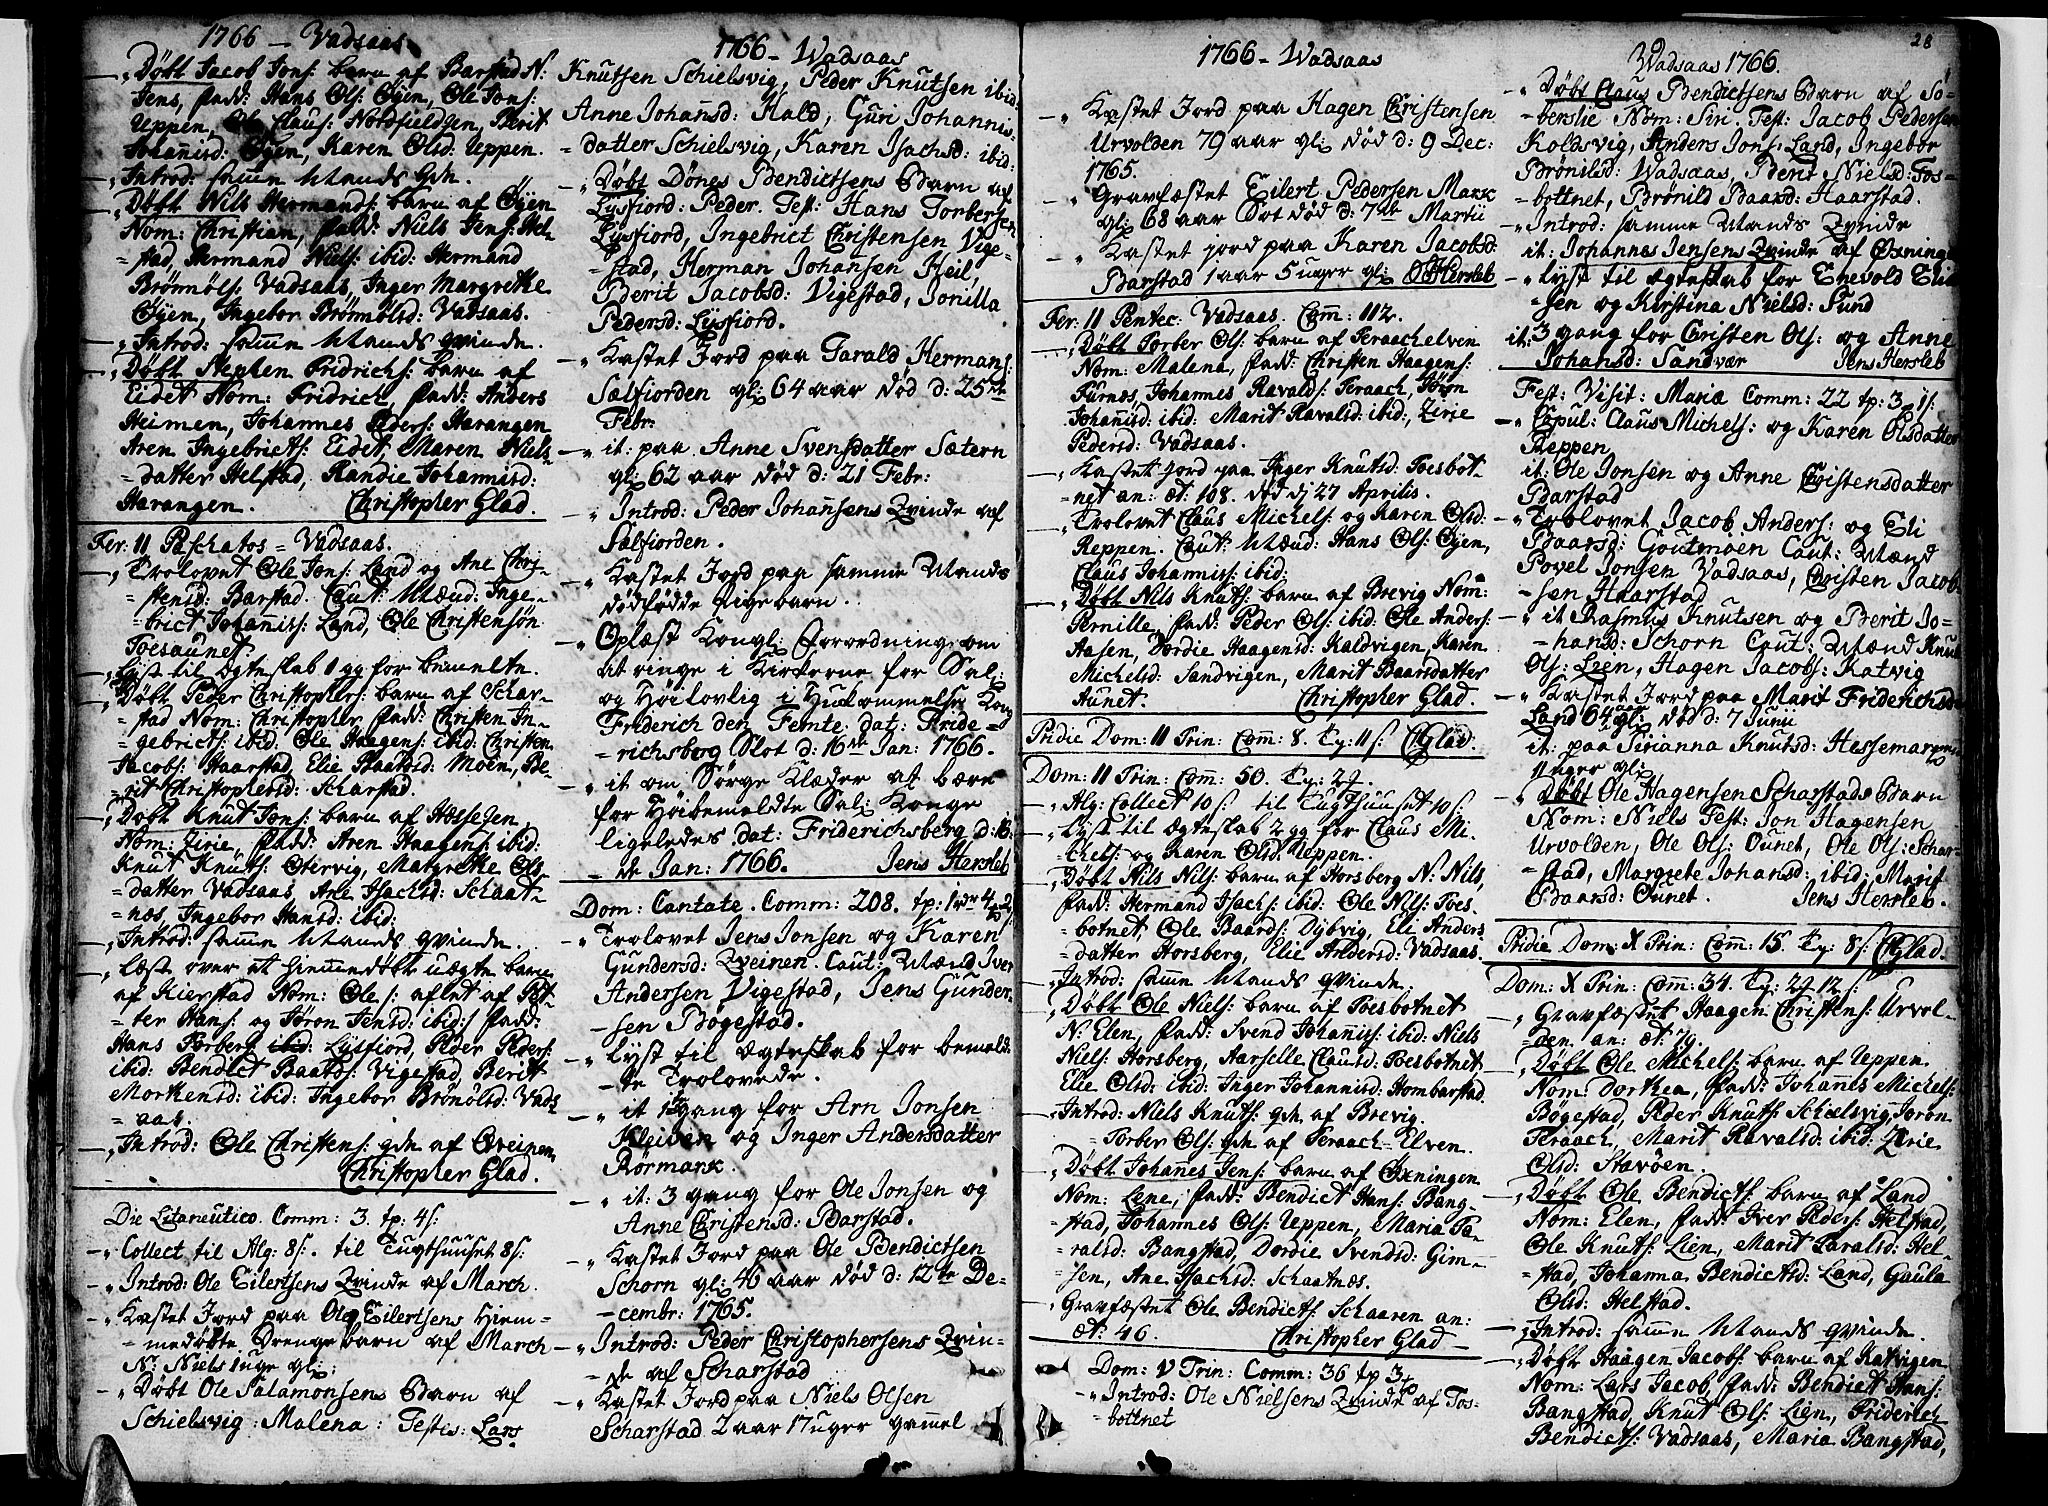 1766 – Vadsaas
„Døbt Jacob Jons: barn af Barstad N:
Jens, fadd: Hans Ols: Øyen, Ole Jons:
Ueppen, Ole Claus: Nordfieldgen, Berit
Johannisd: Øyen, Karen Olsd: Ueppen.
„Introd: samme Mands qde.
„Døbt Nils Hermands: barn af Øyen
Nom: Christian, fadd: Niels Jens: Hel-
=stad, Hermand Niels: ibid: Hermand
Brønnøls: Vadsaas, Inger Margrethe
Øyen, Ingebor Brønnølsd: Vadsaas.
„Introd: samme Mands qvinde.
„Døbt Stephen Fridrichs: barn af
Eidet Nom: Fridrich, fadd: Anders
Heimen, Johannes Peders: Harangen
Aren Ingebricts: Eidet, Maren Niels-
=datter Helstad, Randie Johannisd:
Harangen. Christopher Glad.
Fer: II Paschatos = Vadsaas.
„Trolovet Ole Jons: Land og Ane Chri-
=stensd: Barstad. Caut: Mænd: Inge-
=brict Johannis: Land, Ole Christensøn
Toesaunet
„Lyst til Ægteskab 1 gg for bemelte.
„Døbt Peder Christophers: barn af Schar-
=stad Nom: Christopher, fadd: Christen In-
=gebricts: ibid: Ole Haagens: ibid: Christen
Jacobs: Haarstad, Elie Baarsd: Moen, Be-
rit Christophersd: Scharstad.
„Døbt Knut Jons: barn af Hossesen,
Nom: Zirie, fadd: Aren Haagens: ibid:
Knut Knuts: Ottervig, Margrethe Ols-
=datter Vadsaas, Ane Isachsd: Schaat-
=næs, Ingebor Hansd: ibid:
„Introd: samme Mands qvinde.
„Læst over et hiemmedøbt uægte barn
af Kierstad Nom: Ole /: aflet af Pet-
=ter Hans: og Jøron Jensd: ibid:/ fadd:
Hans Torberg: Lysfiord, Peder Peders:
ibid: Bendict Baards: Vigestad, Berit
Morkensd: ibid: Ingebor Brønølsd: Vads
=aas.
„Introd: Ole Christens: qde af Qveinen.
Christopher Glad.
Die Litaneutico. Comm: 3. tp: 4 s:
„Collect til Alg: 8 s:. til Tugthuuset 8 s:
„Introd: Ole Eilertsens Qvinde af March.
„Kastet Jord paa Ole Eilertsens Hiem-
=medøbte Drenge barn af March
N: Niels 1 uge gl:
„Døbt Ole Salamonsens Barn af
Schielsvig: Malena: Testes: Lars
1766 – Wadsaas
Knutsen Schielsvig, Peder Knutsen ibid:
Anne Johansd: Hald, Guri Johannis-
=datter Schielsvig, Karen Isachsd: ibid:
„Døbt Dønes Bendictsens Barn af
Lysfiord: Peder. Test: Hans Torbersen
Lysfiord, Ingebrict Christensen Vige-
=stad, Herman Johansen Keil,
Berit Jacobsd: Vigestad, Jonilla
Pedersd: Lysfiord.
„Kastet Jord paa Tarald Hermans:
Sælfiorden gl: 64 aar død d: 25de
Febr:
„it: paa Anne Svensdatter Sætern
gl: 62 aar død d: 21 Febr:
„Introd: Peder Johansens Qvinde af
Sælfiorden.
„Kastet Jord paa samme Mands
dødfødde Pigebarn.
„Oplæst Kongl: Forordning om
at ringe i Kirkerne for Sal:
og Høilovlig i Hukommelse Kong
Friderich den Femte dat: Fride-
=richsberg Slot d: 16de Jan: 1766.
„it om Sørge Klæder at bære
for Høibemeldte Sal: Konge
ligeledes dat: Friderichsberg d: 16
=de Jan: 1766. Jens Hersleb
Dom: Cantate. Comm: 208. tp: 1 rdr 4
„Trolovet Jens Jonsen og Karen
Gundersd: Qveinen. Caut: Mænd Iver
Andersen Vigestad, Jens Gunder-
=sen Bøgestad.
„Lyst til Ægteskab for bemeld-
=te Trolovede.
„it 1 gang for Arn Jonsen
Kleivan og Inger Andersdatter
Rørmark.
„it: 3 gang for Ole Jonsen og
Anne Christensd: Barstad.
„Kastet Jord paa Ole Bendictsen
Schorn gl: 46 aar død d: 12te De-
=cembr: 1765.
„Introd: Peder Christophersens Qvin-
=de af Scharstad
„Kastet Jord paa Niels Olsen
Scharstad 2 aar 17 uger gammel
1766 – Wadsaas
„Kastet Jord paa Hagen Christensen
Urvolden 79 aar gl: død d: 9 Dec:
1765.
„Gravfæstet Eilert Pedersen Mark
gl: 68 aar død d: 7de Martii
„Kastet jord paa Karen Jacobsd:
Barstad 1 aar 5 uger gl: Hersleb
Fer: II Pentec: Vadsaas. Comm: 112.
„Døbt Torber Ols: barn af Teraachelven
Nom: Malena, fadd: Christen Haagens:
Furnæs, Johannes Ravalds: Teraach, Jørn
Johannisd: ibid: Marit Ravalsd: ibid:, Zirie
Pedersd: Vadsaas.
„Kastet jord paa Inger Knutsd: Toesbot-
=net an: æt: 108. død d: 27 Aprilis.
„Trolovet Claus Michels: og Karen Olsd:
Reppen. Caut: Mænd: Hans Ols: Øyen,
Claus Johannis: ibid:
„Døbt Nils Knuts: barn af Brevig Nom:
Pernille, fadd: Peder Ols: ibid: Ole Anders:
Aasen, Dordie Haagensd: Kaldvigen, Karen
Michelsd: Sandvigen, Marit Baarsdatter
Aunet. Christopher Glad.
Pridie Dom: II Trin: Comm: 8. Tp: 11 s: CGlad.
Dom: II Trin: Comm: 50. Tp: 2
„Alg: Collect 10 s: til Tugthuuset 10 s:
„Lyst til Ægteskab 2 gg for Claus Mi-
chels: og Karen Olsd: Ueppen.
„Døbt Nils Nils: barn af Horsberg N: Nils,
fadd: Hermand Isachs: ibid: Ole Nils: Toes-
botnet, Ole Baards: Dybvig, Eli Anders
=datter Horsberg, Elie Andersd: Vadsaas.
„Introd: samme Mands qvinde.
„Døbt Ole Niels: barn af Toesbotnet
N: Elen, fadd: Svend Johannis: ibid: Niels
Niels: Horsberg, Aarselle Clausd: Toesbotnet
Elie Olsd: ibid: Inger Johannisd: Hombarstad
„Introd: Niels Knuts: qde af Brevig.
=Torber Ols: qde af Teraach=Elven.
„Døbt Johannes Jens: barn af Oxningen
Nom: Lene, fadd: Bendict Hans: Bang-
=stad, Johannes Ols: Ueppen, Maria Ta-
=ralsd: Bangstad, Dordie Svendsd: Gim-
sen, Ane Isachsd: Schaatnæs.
„Gravfæstet Ole Bendicts: Schaaren an:
æt: 46. Christopher Glad –
Dom: V Trin: Comm: 36 tp 3
„Introd: Ole Nielsens Qvinde af Tos-
=bottnet
28
Wadsaas 1766.
„Døbt Claus Bendictsens Barn af So-
=berslie Nom: Siri. Test: Jacob Pedersen
Koldsvig, Anders Jons: Land, Ingebor
Brønilsd: Wadsaas, Berit Nielsd: Tos-
=bottnet, Brønild Baarsd: Haarstad.
„Introd: samme Mands Qvinde
it: Johannes Jensens Qvinde af Oxninge
„Lyst til Ægteskab for Enevold Eli
=sen og Kirstina Nielsd: Sund
it: 3 gang for Christen Ols: og Anne
Johansd: Sandvær Jens Hersleb
Fest: Visit: Mariæ Comm: 22 tp: 3 1 s:
„Copul: Claus Michels: og Karen Olsdatter
Reppen
it: Ole Jonsen og Anne Christensdatter
Barstad
„Trolovet Jacob Anders: og Eli
Baarsd: Goutmoen Caut: Mænd
Povel Jonsen Vadsaas, Christen Jacob-
=sen Haarstad
„it Rasmus Knutsen og Berit Jo-
=hansd: Schorn Caut: Mænd Knut
Ols: Lien, Hagen Jacobs: Katvig
„Kastet Jord paa Marit Friderichsd:
Land 64 aar gl: død d: 7 Junii
it: paa Sirianna Knutsd: Hessemarx
11 uger gl:
„Døbt Ole Hagensen Scharstads Barn
Nom: Niels Test: Jon Hagensen
Urvolden, Ole Ols: Ounet, Ole Ols: Schar-
=stad, Margrete Johansd: ibid: Marit
Baarsd: Ounet. Jens Hersleb.
Pridie Dom: X Trin: Comm: 15. Tp: 8 s: CGlad.
Dom: X Trin: Comm: 34. Tp: 2 12 s:
„Gravfæstet Haagen Christens: Urvol-
=den an: æt: 79.
„Døbt Ole Michels: barn af Ueppen
Nom: Dorthea, fadd: Johannes Michels:
Bøgestad, Peder Knuts: Schielsvig, Joron
Teraach, Marit Ravalsd: ibid: Zirie
Olsd: Stavøen.
„Døbt Ole Bendicts: barn af Land
Nom: Elen, fadd: Iver Peders: Helstad,
Ole Knuts: Lien, Marit Taralsd: Hel-
=stad, Johanna Bendictsd: Land, Gaula
Olsd: Helstad.
„Introd: samme Mands qvinde.
„Døbt Haagen Jacobs: barn af Katvigen
Nom: Lars Jacob, fadd: Bendict Hans:
Bangstad, Knut Ols: Lien, Friderich
Bendicts: Vadsaas, Maria Bangstad,